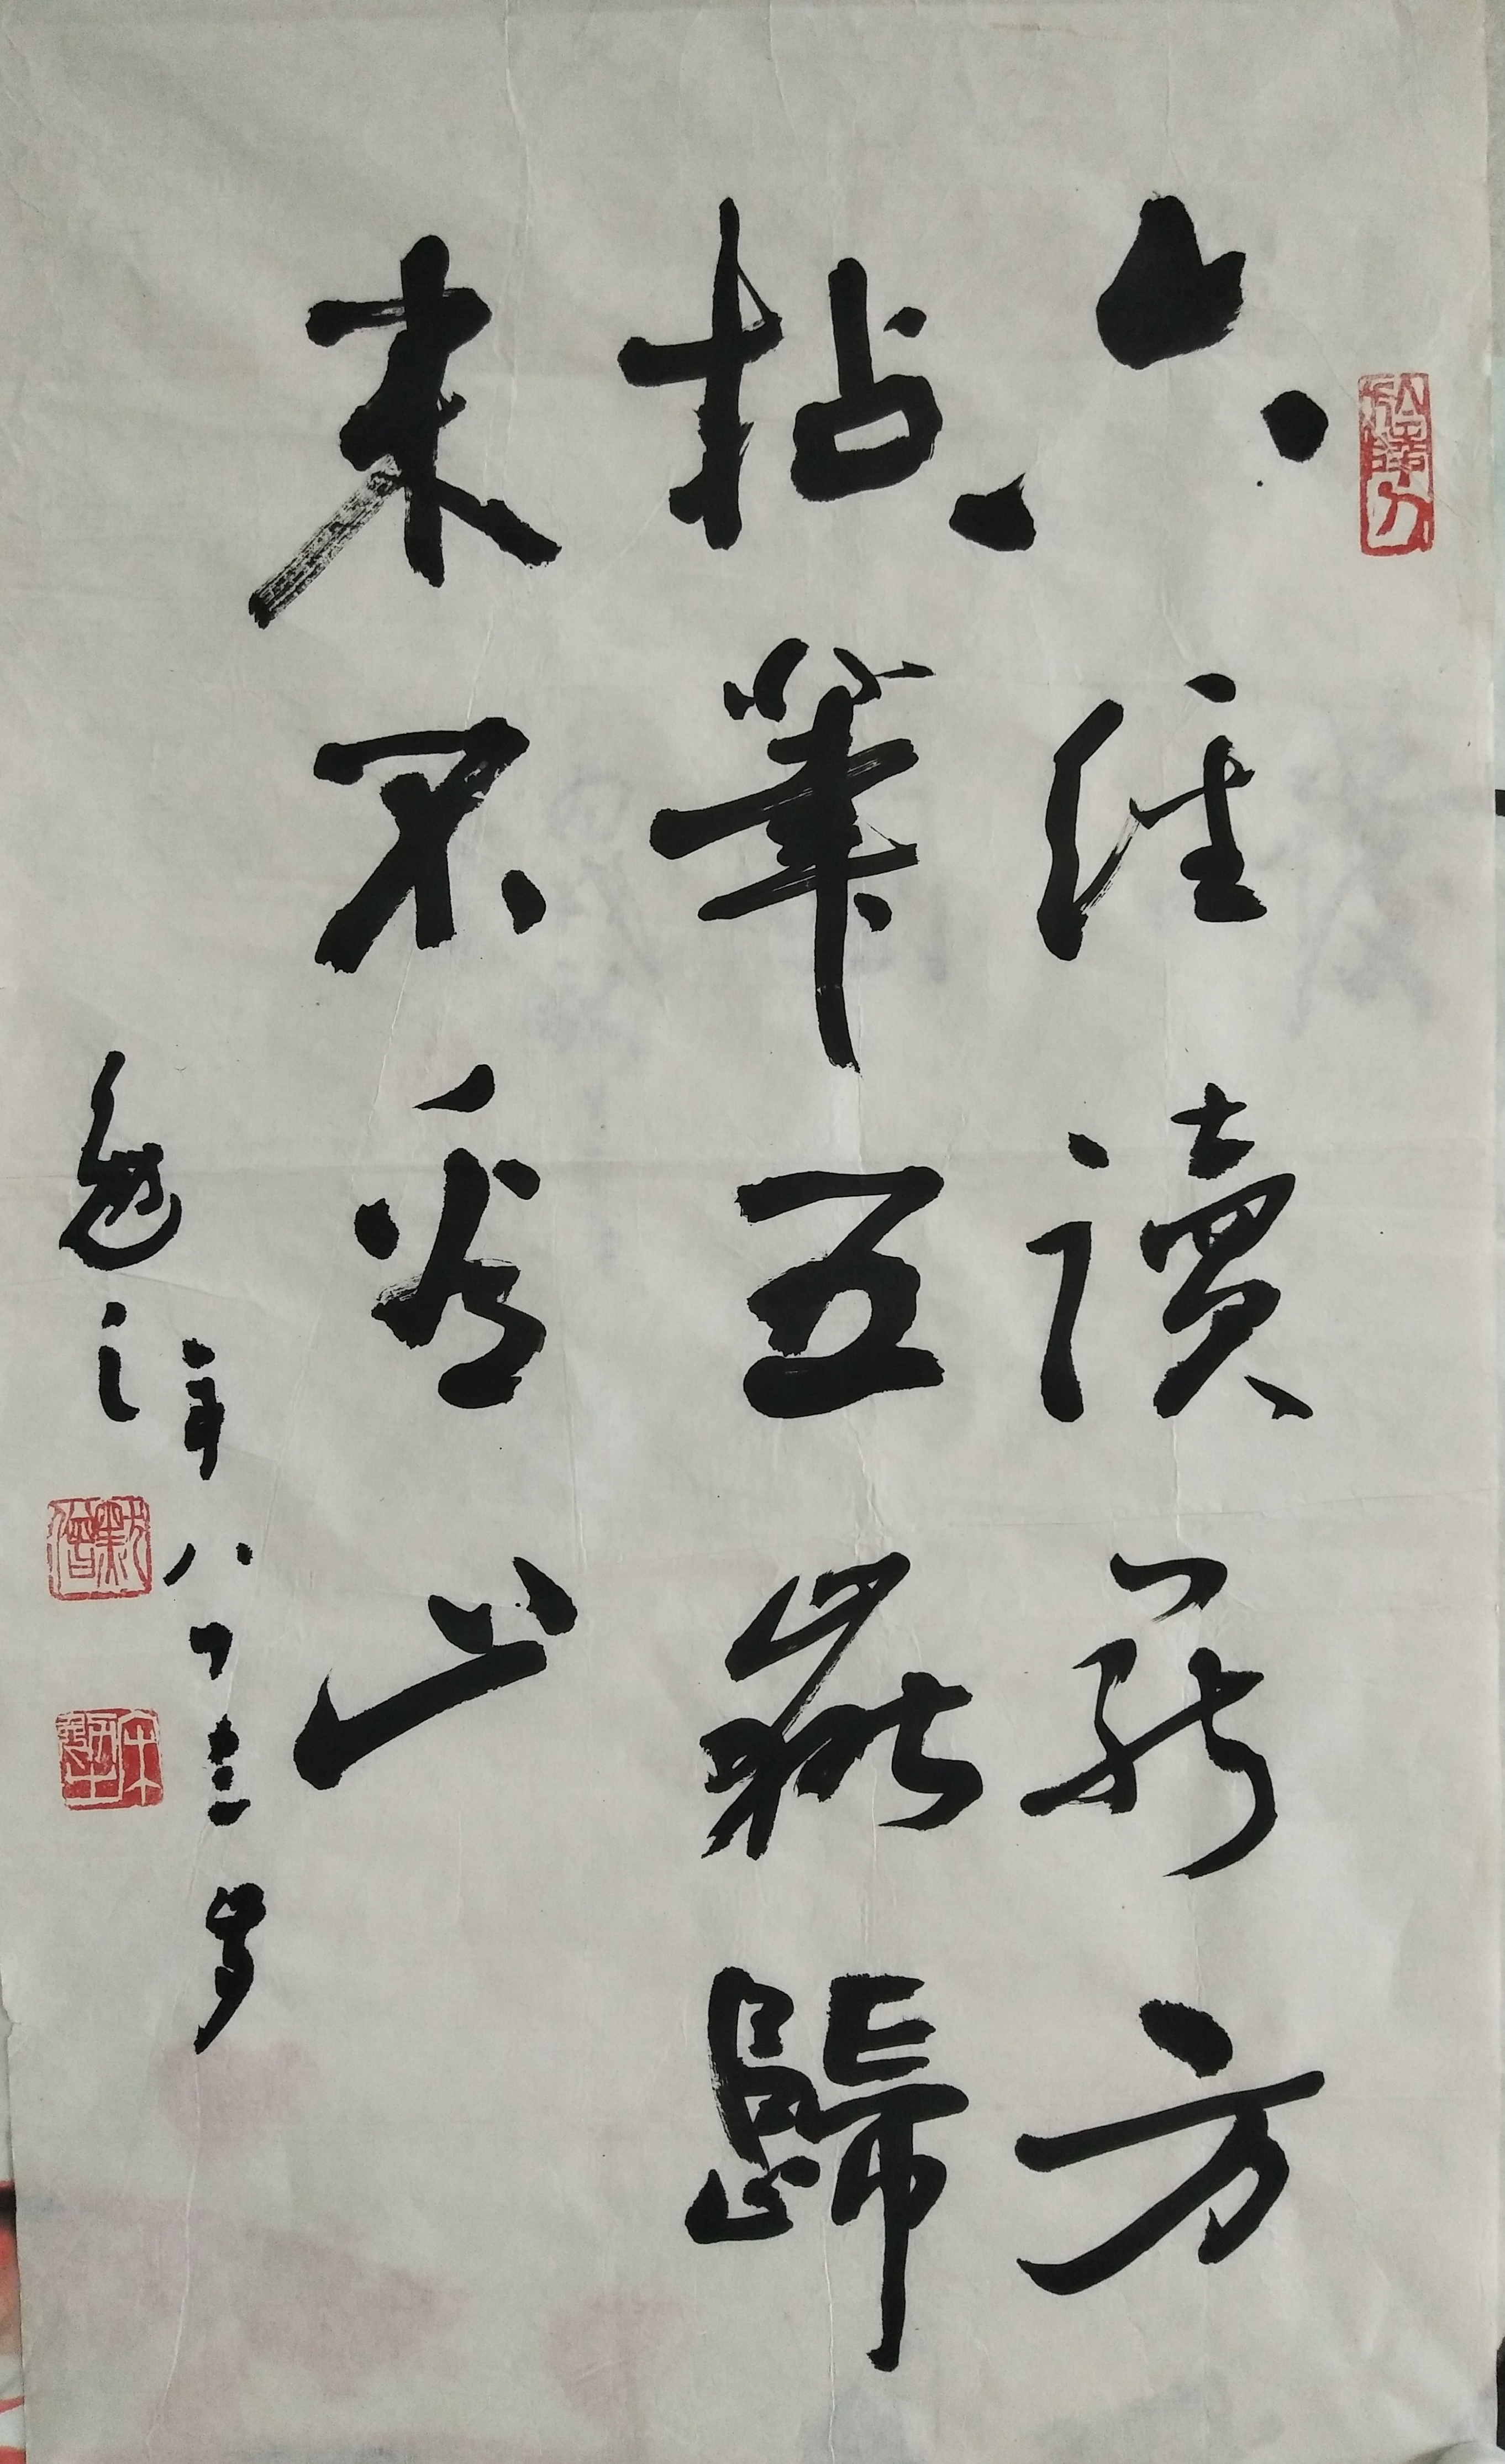 六經讀罷方
拈筆五嶽歸
來不看山
八十三岁